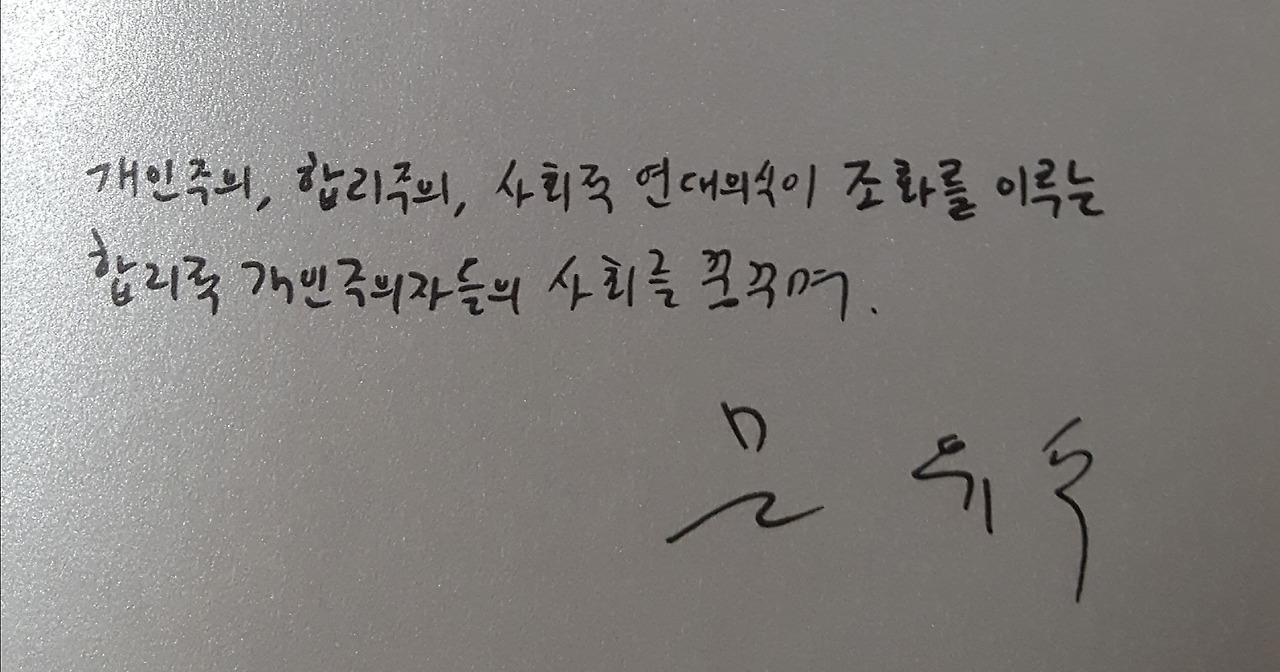 개인주의, 합리주의, 사회적 연대의식이 조화를 이루는
합리적 개인주의자들의 사회를 꿈꾸며.
문유석